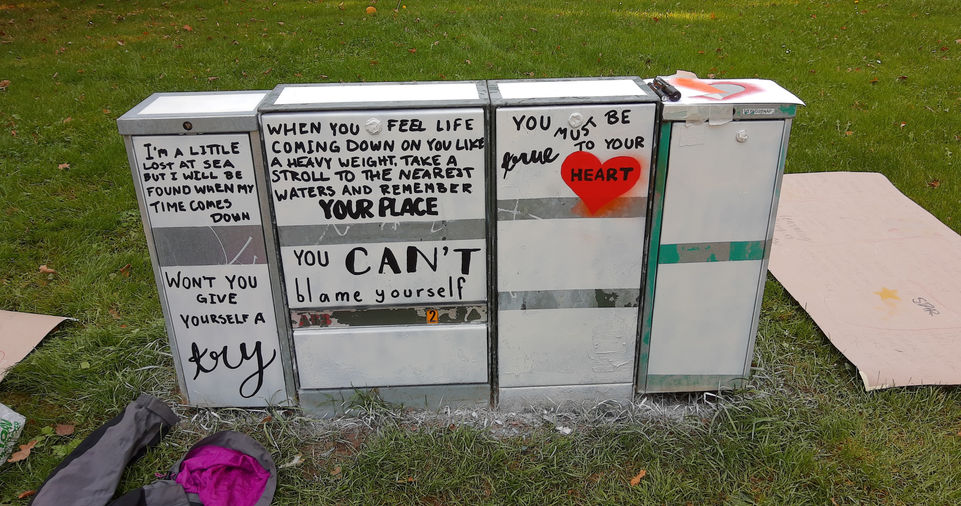 I'M A LITTLE
LOST AT SEA
BUT I WILL BE
FOUND WHEN MY
TIME COMES
DOWN
WON'T YOU
GIVE
YOURSELF A
try
WHEN YOU FEEL LIFE
COMING DOWN ON YOU LIKE
A HEAVY WEIGHT, TAKE A
STROLL TO THE NEAREST
WATERS AND REMEMBER
YOUR PLACE
YOU CAN'T
blame yourself
2
YOU MUST BE
true TO YOUR
HEART